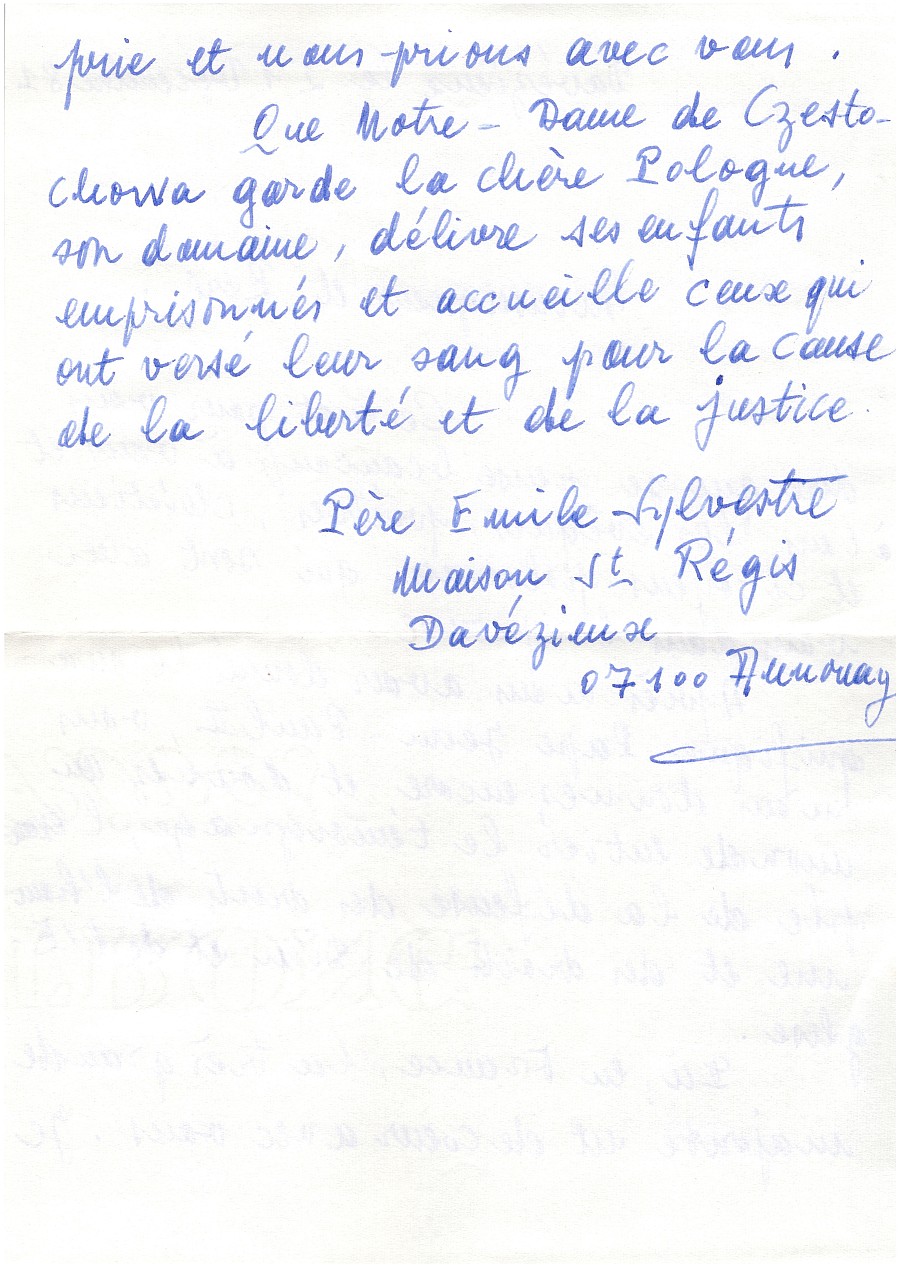 prie et nous prions avec vous.
Que Notre-Dame de Czesto-
chowa garde la chère Pologne,
son domaine, délivre ses enfants
emprisonnés et accueille ceux qui
ont versé leur sang pour la cause
de la liberté et de la justice.
Père Emile Sylvestre
Maison St Régis
Davézieux
07100 Annonay